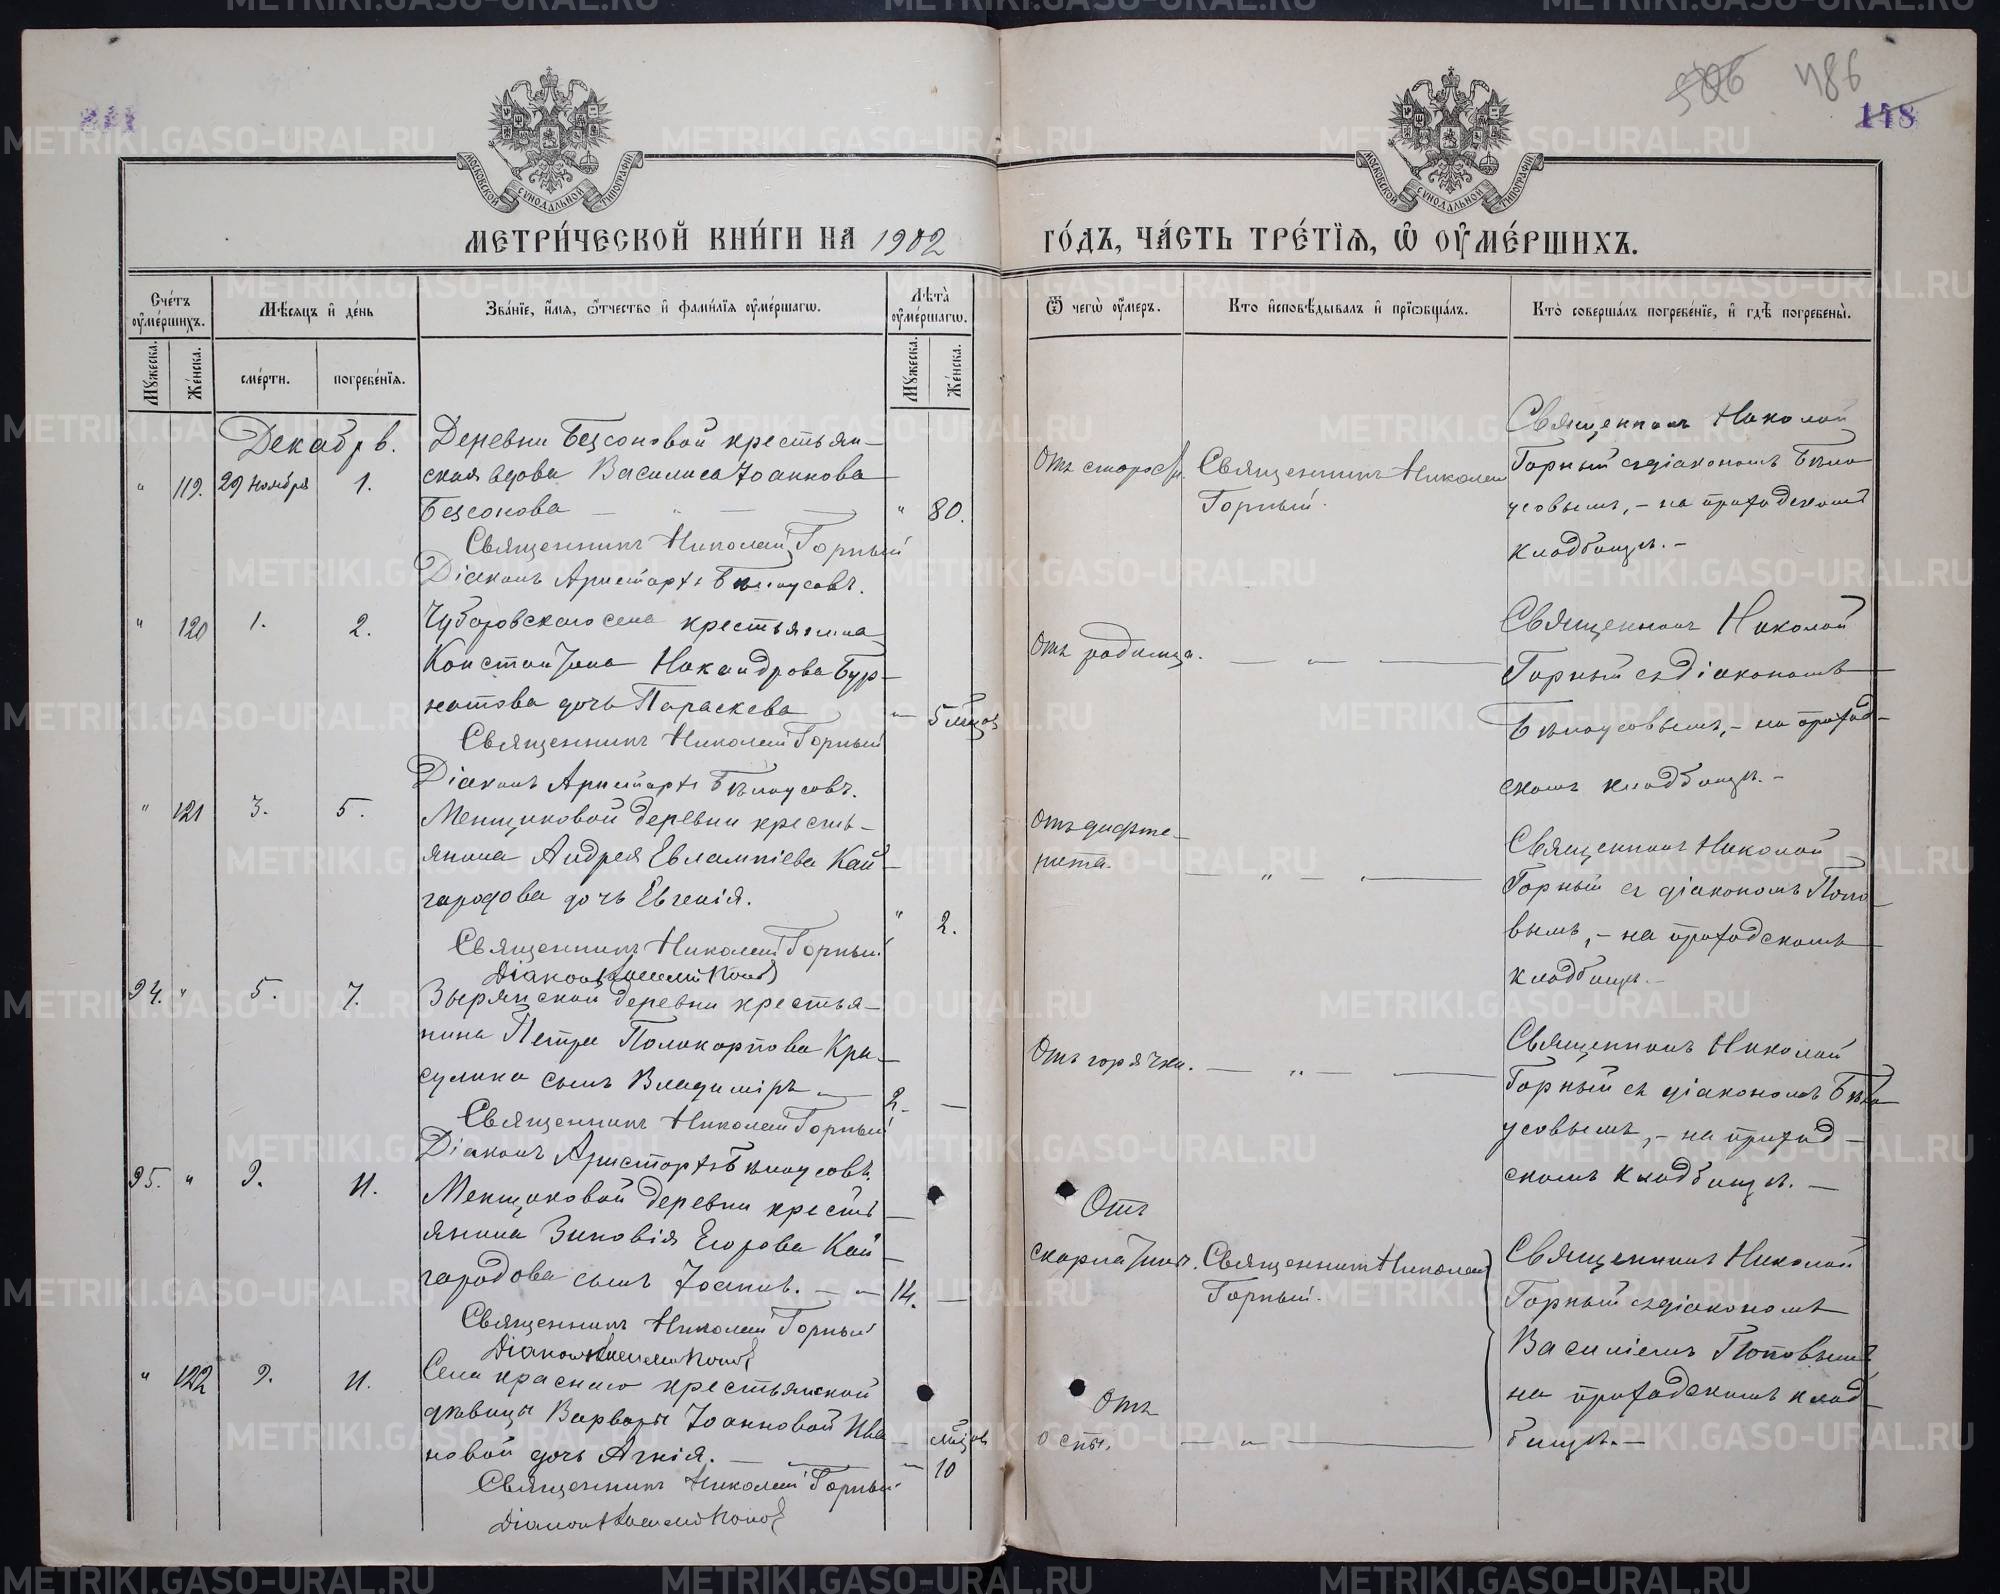 506 486
118
МОСКОВСКОЙ СУНОДАЛЬНОЙ ТИПОГРАФІИ
МОСКОВСКОЙ СУНОДАЛЬНОЙ ТИПОГРАФІИ
МЕТРИ́ЧЕСКОЙ КНИ́ГИ НА 1902
ГО́ДЪ, ЧА́СТЬ ТРЕ́ТЇѦ, Ѡ҆ ОУ҆МЕ́РШИХЪ.
Сче́тъ оу҆ме́ршихъ.
Мѣ́сяцъ и҆ де́нь
Зва́нїе, и҆́мѧ, ѻ҆́тчество и҆ фами́лїѧ оу҆ме́ршагѡ.
Лѣ́та оу҆ме́ршагѡ.
Ѿ чегѡ̀ оу҆́меръ.
Кто̀ и҆сповѣ́дывалъ и҆ прїѡбща́лъ.
Кто̀ соверша́лъ погребе́нїе, и҆ гдѣ̀ погребены̀.
Мꙋ́жеска.
Же́нска.
сме́рти.
погребе́нїѧ.
Мꙋ́жеска.
Же́нска.
Декабрь.
" 119. 29 ноября 1.
Деревни Безсоновой крестьян-
ская вдова Василиса Іоаннова
Безсонова — " — — " 80.
Священникъ Николай Горный
Діаконъ Аристархъ Бѣлоусовъ.
Отъ старости.
Священникъ Николай
Горный.
Священникъ Николай
Горный съ діакономъ Бѣло
усовымъ, – на приходскомъ
кладбищѣ. –
" 120 1. 2.
Чубаровскаго села крестьянина
Константина Никандрова Бур-
натова дочь Параскева — 5 мѣсцов
Священникъ Николай Горный
Діаконъ Аристархъ Бѣлоусовъ.
Отъ родимца. — " —
Священникъ Николай
Горный съ діакономъ
Бѣлоусовымъ, – на приход-
скомъ кладбищѣ. –
" 121 3. 5.
Менщиковой деревни кресть-
янина Андрея Евлампіева Кай-
городова дочь Евгенія. " 2.
Священникъ Николай Горный
Діаконъ Василій Поповъ
Отъ дифте-
рита. — " — " —
Священникъ Николай
Горный съ діакономъ Попо-
вымъ, – на приходскомъ
кладбищѣ. –
94. " 5. 7.
Зырянской деревни крестья-
нина Петра Поликарпова Кра-
сулина сынъ Владиміръ — 2. —
Священникъ Николай Горный
Діаконъ Аристархъ Бѣлоусовъ.
Отъ горячки. — " — —
Священникъ Николай
Горный съ діакономъ Бѣло
усовымъ, – на приход-
скомъ кладбищѣ. –
95. " 9. 11.
Менщиковой деревни кресть-
янина Зиновія Егорова Кай-
городова сынъ Іоаннъ. — " 14. —
Священникъ Николай Горный
Діаконъ Василій Поповъ
Отъ
скарлатины.
Священникъ Николай
Горный.
Священникъ Николай
Горный съ діакономъ
Василіемъ Поповымъ
на приходскомъ клад-
бищѣ. –
" 122 9. 11.
Села Краснаго крестьянской
дѣвицы Варвары Іоанновой Ива
новой дочь Агнія. — — мѣсцов
" 10
Священникъ Николай Горный
Діаконъ Василій Поповъ
Отъ
оспы. — " —
METRIKI.GASO-URAL.RU